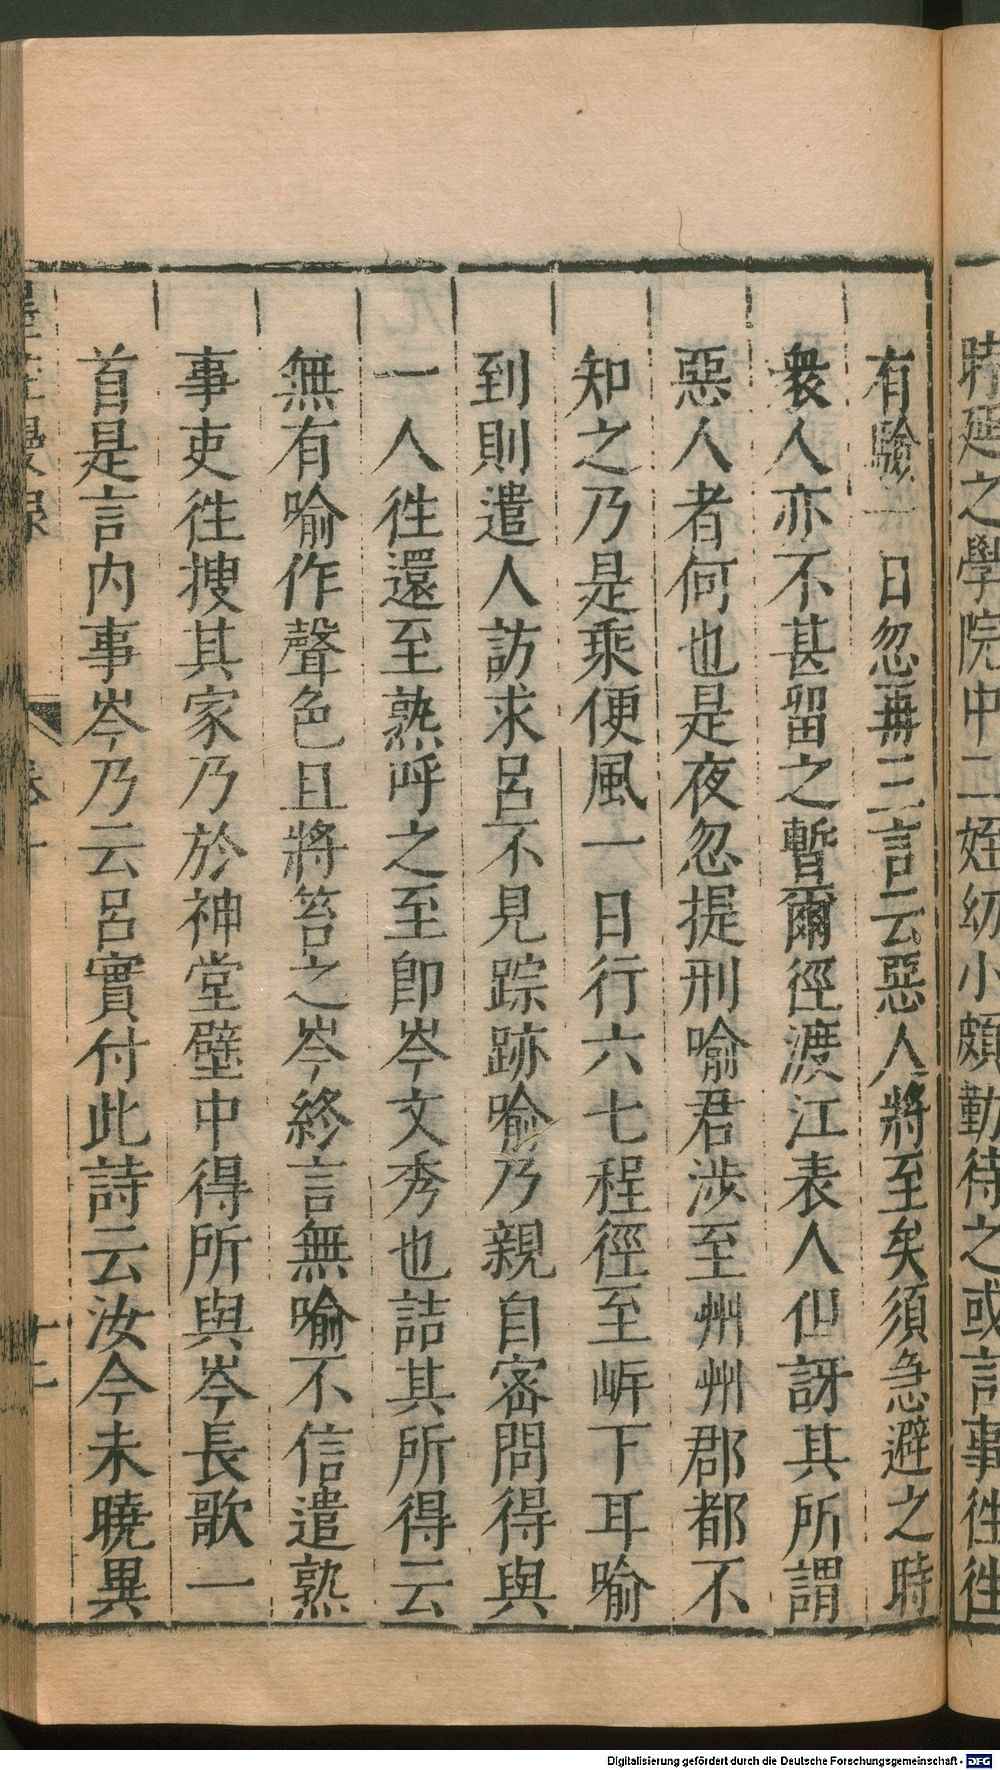 時延之學院中二姪幼小頗勤待之或言事徃徃
有驗一日忽再三言云惡人將至矣須急避之時
衆人亦不甚留之暫爾徑渡江表人但訝其所謂
惡人者何也是夜忽提刑喻君涉至州州郡都不
知之乃是乘便風一日行六七程徑至㟁下耳喻
到則遣人訪求呂不見踪跡喻乃親自密問得與
一人徃還至熟呼之至卽岑文秀也詰其所得云
無有喻作聲色且將笞之岑終言無喻不信遣熟
事吏徃搜其家乃於神堂壁中得所與岑長歌一
首是言内事岑乃云呂實付此詩云汝今未曉異
墨莊漫錄
卷十
十二
Digitalisierung gefördert durch die Deutsche Forschungsgemeinschaft - DFG